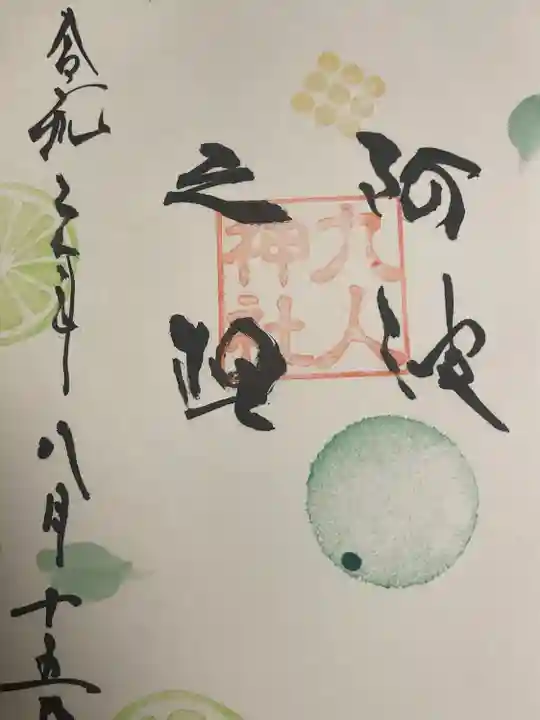 阿波
之踊
九人
神社
令和三年八月十五日